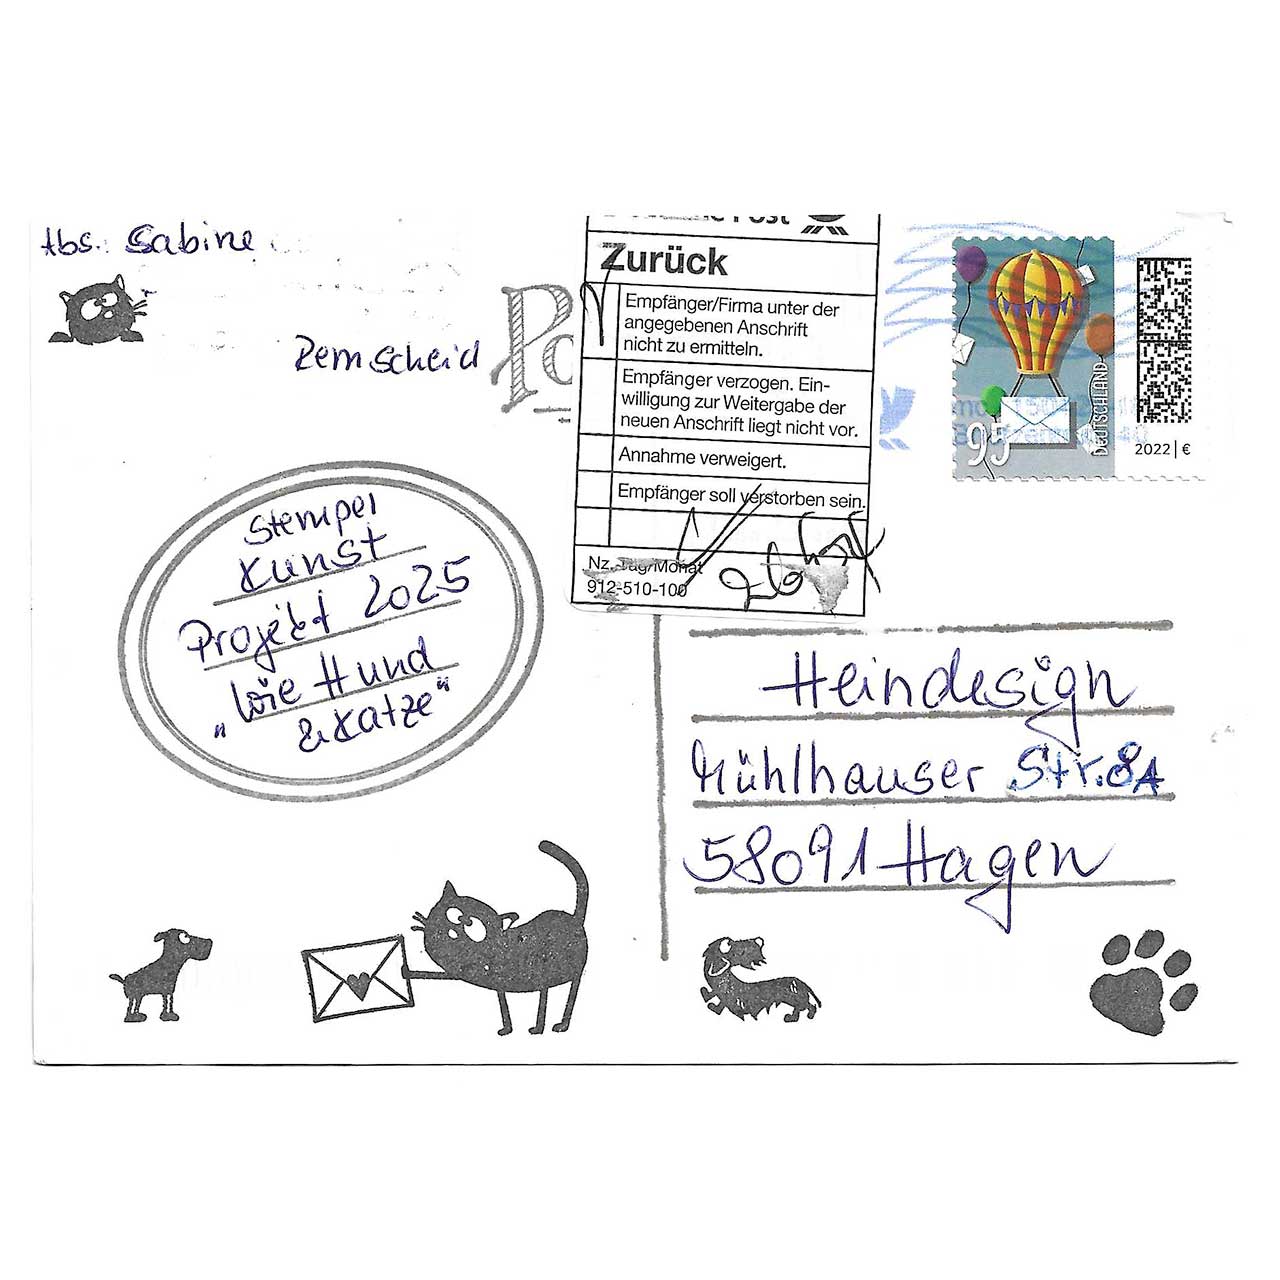 Abs. Sabine
Remscheid
Stempel
Kunst
Projekt 2025
„Wie Hund
& Katze“
Post
Zurück
Empfänger/Firma unter der
angegebenen Anschrift
nicht zu ermitteln.
Empfänger verzogen. Ein-
willigung zur Weitergabe der
neuen Anschrift liegt nicht vor.
Annahme verweigert.
Empfänger soll verstorben sein.
Nz. Tag/Monat
912-510-100
95
DEUTSCHLAND
2022 | €
Heindesign
Mühlhauser Str. 8A
58091 Hagen